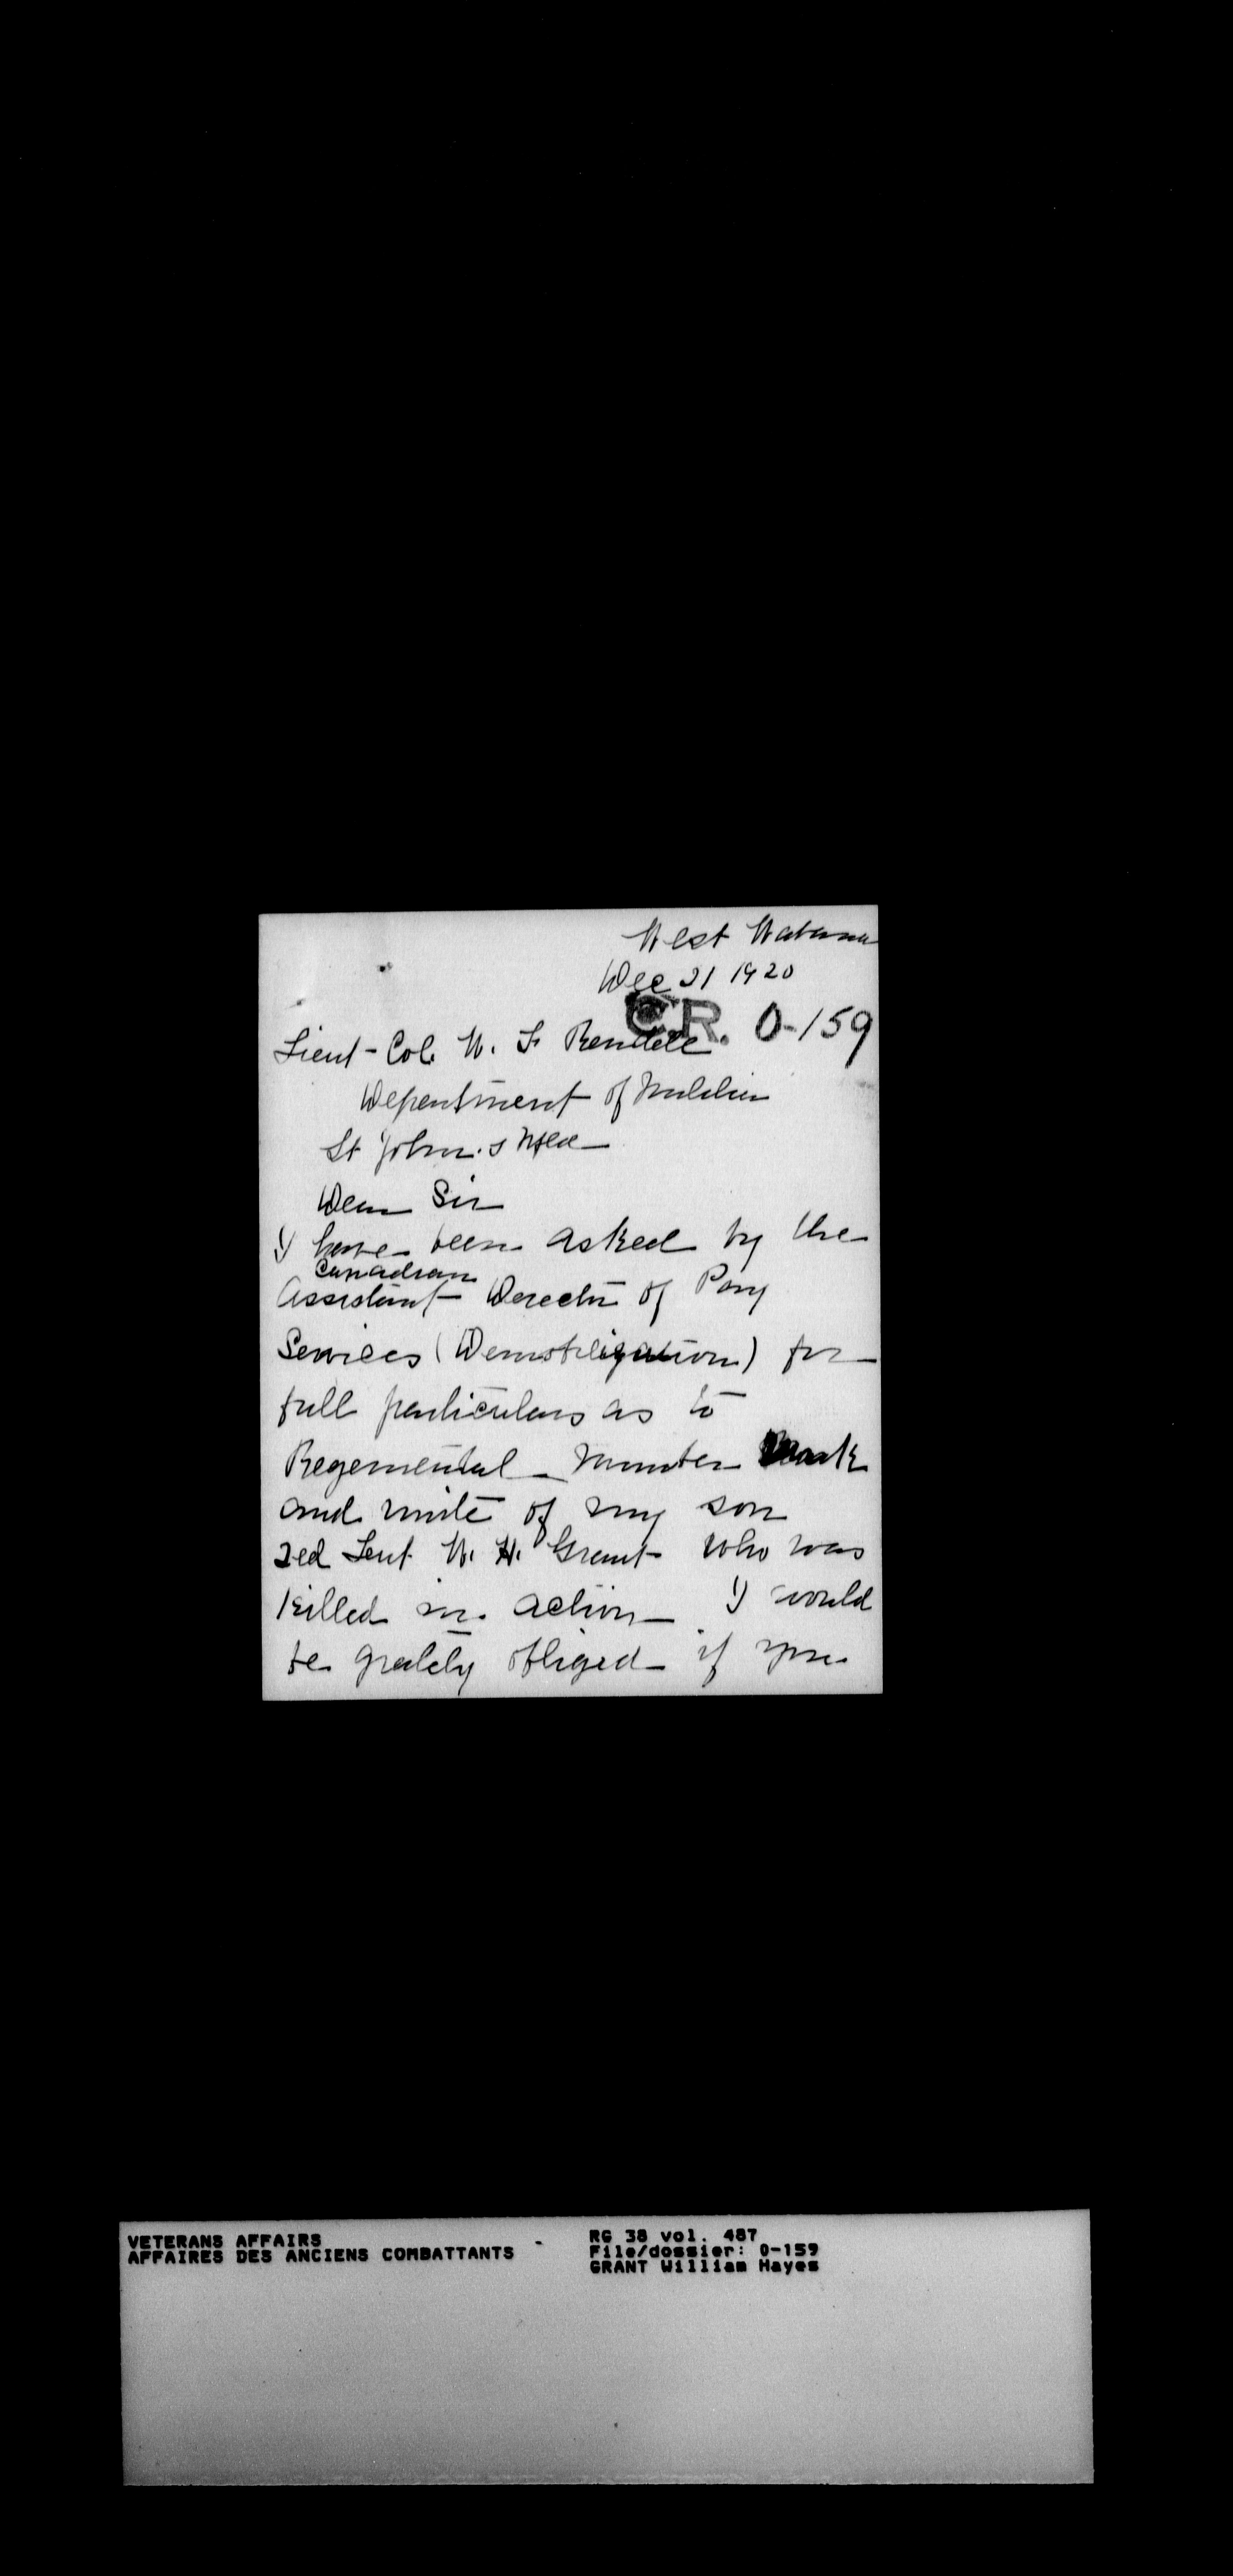 West Wabana
Dec 21 1920
C.R. 0-159
Lieut-Col. W. F. Rendell
Department of Militia
St John.s Nfld
Dear Sir
I have been asked by the
Canadian
Assistant Derector of Pay
Services (Demobiligation) for
full particulars as to
Regemental number Rank
and unite of my son
2ed Leut W. H. Grant who was
killed in action I would
be grately obliged if you
VETERANS AFFAIRS - RG 38 vol. 487
AFFAIRES DES ANCIENS COMBATTANTS File/dossier: 0-159
GRANT William Hayes